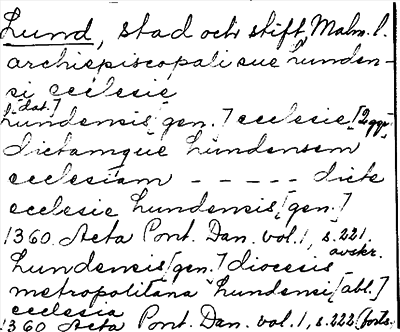 Lund, stad och stift, Malm. l.
archiepiscopali sue Lunden-
si ecclesie
dat.]
Lundensis [gen.] ecclesie [2 ggr]
dictamque Lundensem
ecclesiam - - - - - dicte
ecclesie Lundensis [gen.]
1360 Acta Pont. Dan. vol. 1, s. 221.
avskr.
Lundensis [gen.] diocesis
metropolitana Lundensi [abl.]
ecclesia
1360 Acta Pont. Dan. vol. 1, s. 222 (forts.